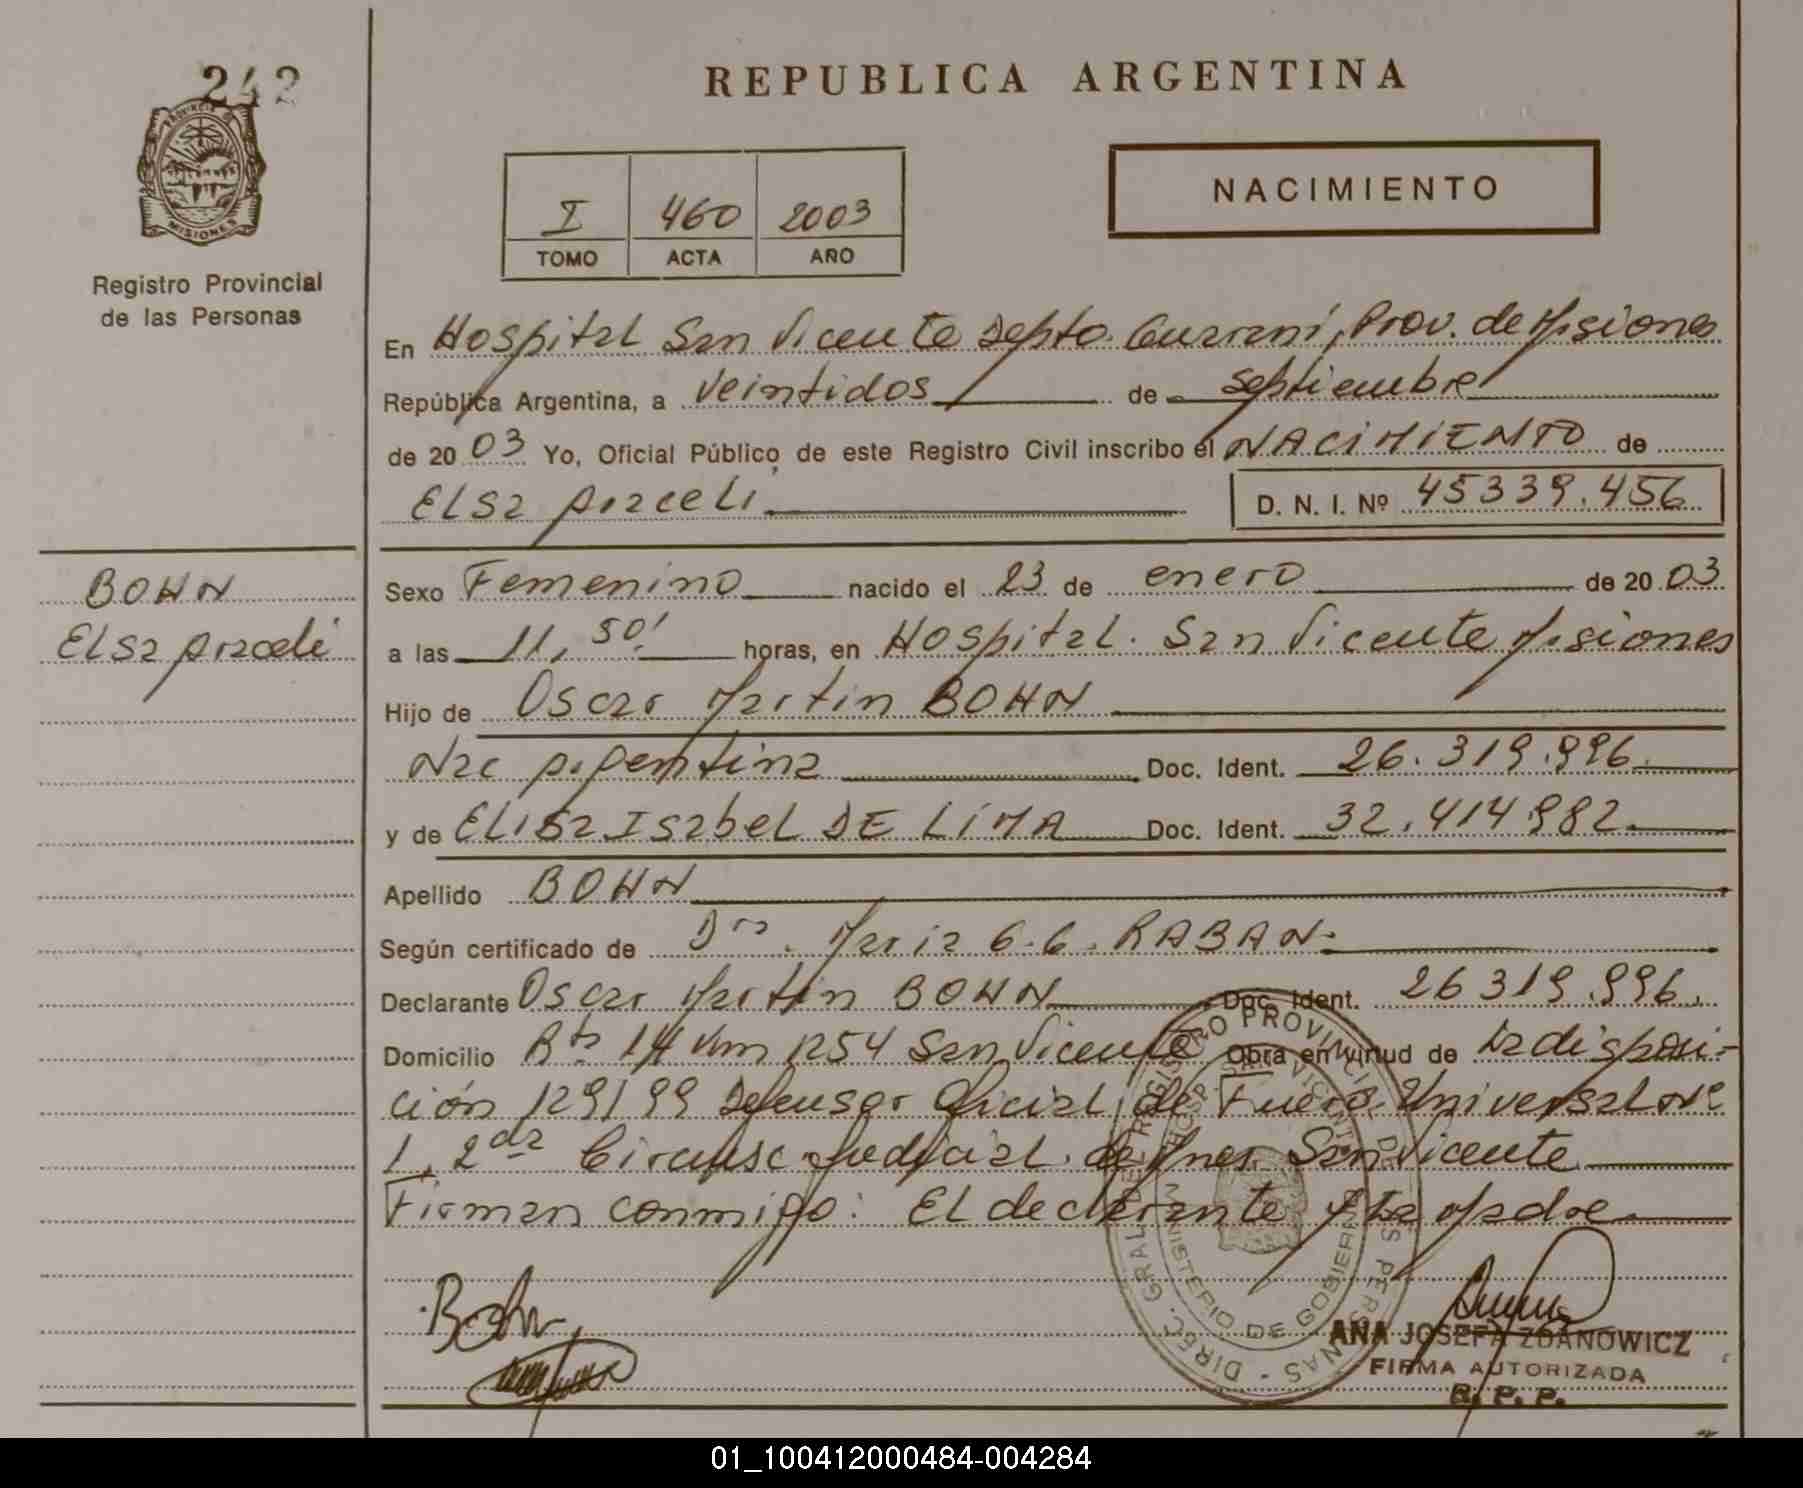 242
REPUBLICA ARGENTINA
PROVINCIA DE
MISIONES
Registro Provincial
de las Personas
NACIMIENTO
I 460 2003
TOMO ACTA AÑO
En Hospital San Vicente Depto. Guaraní, Prov. de Misiones
República Argentina, a veintidos de septiembre
de 2003 Yo, Oficial Público de este Registro Civil inscribo el NACIMIENTO de
Elsa Araceli D. N. I. Nº 45339.456
BOHN
Elsa Araceli
Sexo Femenino nacido el 23 de enero de 2003
a las 11,50' horas, en Hospital San Vicente Misiones
Hijo de Oscar Martin BOHN
Nac Argentina Doc. Ident. 26.319.996
y de Elisa Isabel DE LIMA Doc. Ident. 32.414.982
Apellido BOHN
Según certificado de Dra. Maria G.G. RABAN
Declarante Oscar Martin BOHN Doc. Ident. 26 319.996.
Domicilio Rta 14 Km 1254 San Vicente Obra en virtud de la disposi-
ción 129/99 Defensor Oficial de Fuero Universal Nº
1, 2da Circunsc. Judicial de Mnes. San Vicente
Firman conmigo: El declarante y la Madre
Bohn
DIREC. GRAL. DEL REGISTRO PROVINCIAL DE LAS PERSONAS
HOSP. SAN VICENTE
MINISTERIO DE GOBIERNO
ANA JOSEFA ZDANOWICZ
FIRMA AUTORIZADA
R. P. P.
01_100412000484-004284